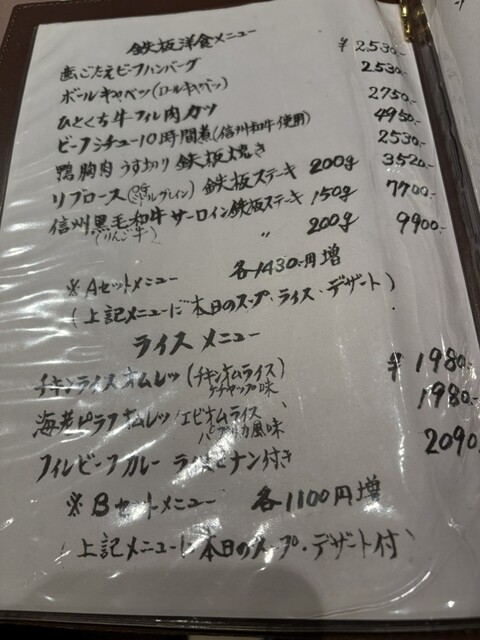 鉄板洋食メニュー
歯ごたえビーフハンバーグ ¥2530-
ボールキャベツ(ロールキャベツ) 2530-
ひとくち牛フィレ肉カツ 2750-
ビーフシチュー10時間煮(信州和牛使用) 4950
鴨胸肉 うす切り 鉄板焼き 2530-
リブロース 鉄板ステーキ 200g 3520-
信州黒毛和牛サーロイン鉄板ステーキ 150g 7700-
(りんご牛) 〃 200g 9900-
※Aセットメニュー 各1430.-円増
(上記メニューに本日のスープ・ライス・デザート)
ライスメニュー
チキンライスオムレツ(チキンオムライス) ¥1980.-
ケチャップ味
海老ピラフオムレツ エビオムライス 1980.-
パプリカ風味
フィレビーフカレー 付き 2090
※Bセットメニュー 各1100円増
(上記メニューに本日のスープ・デザート付)